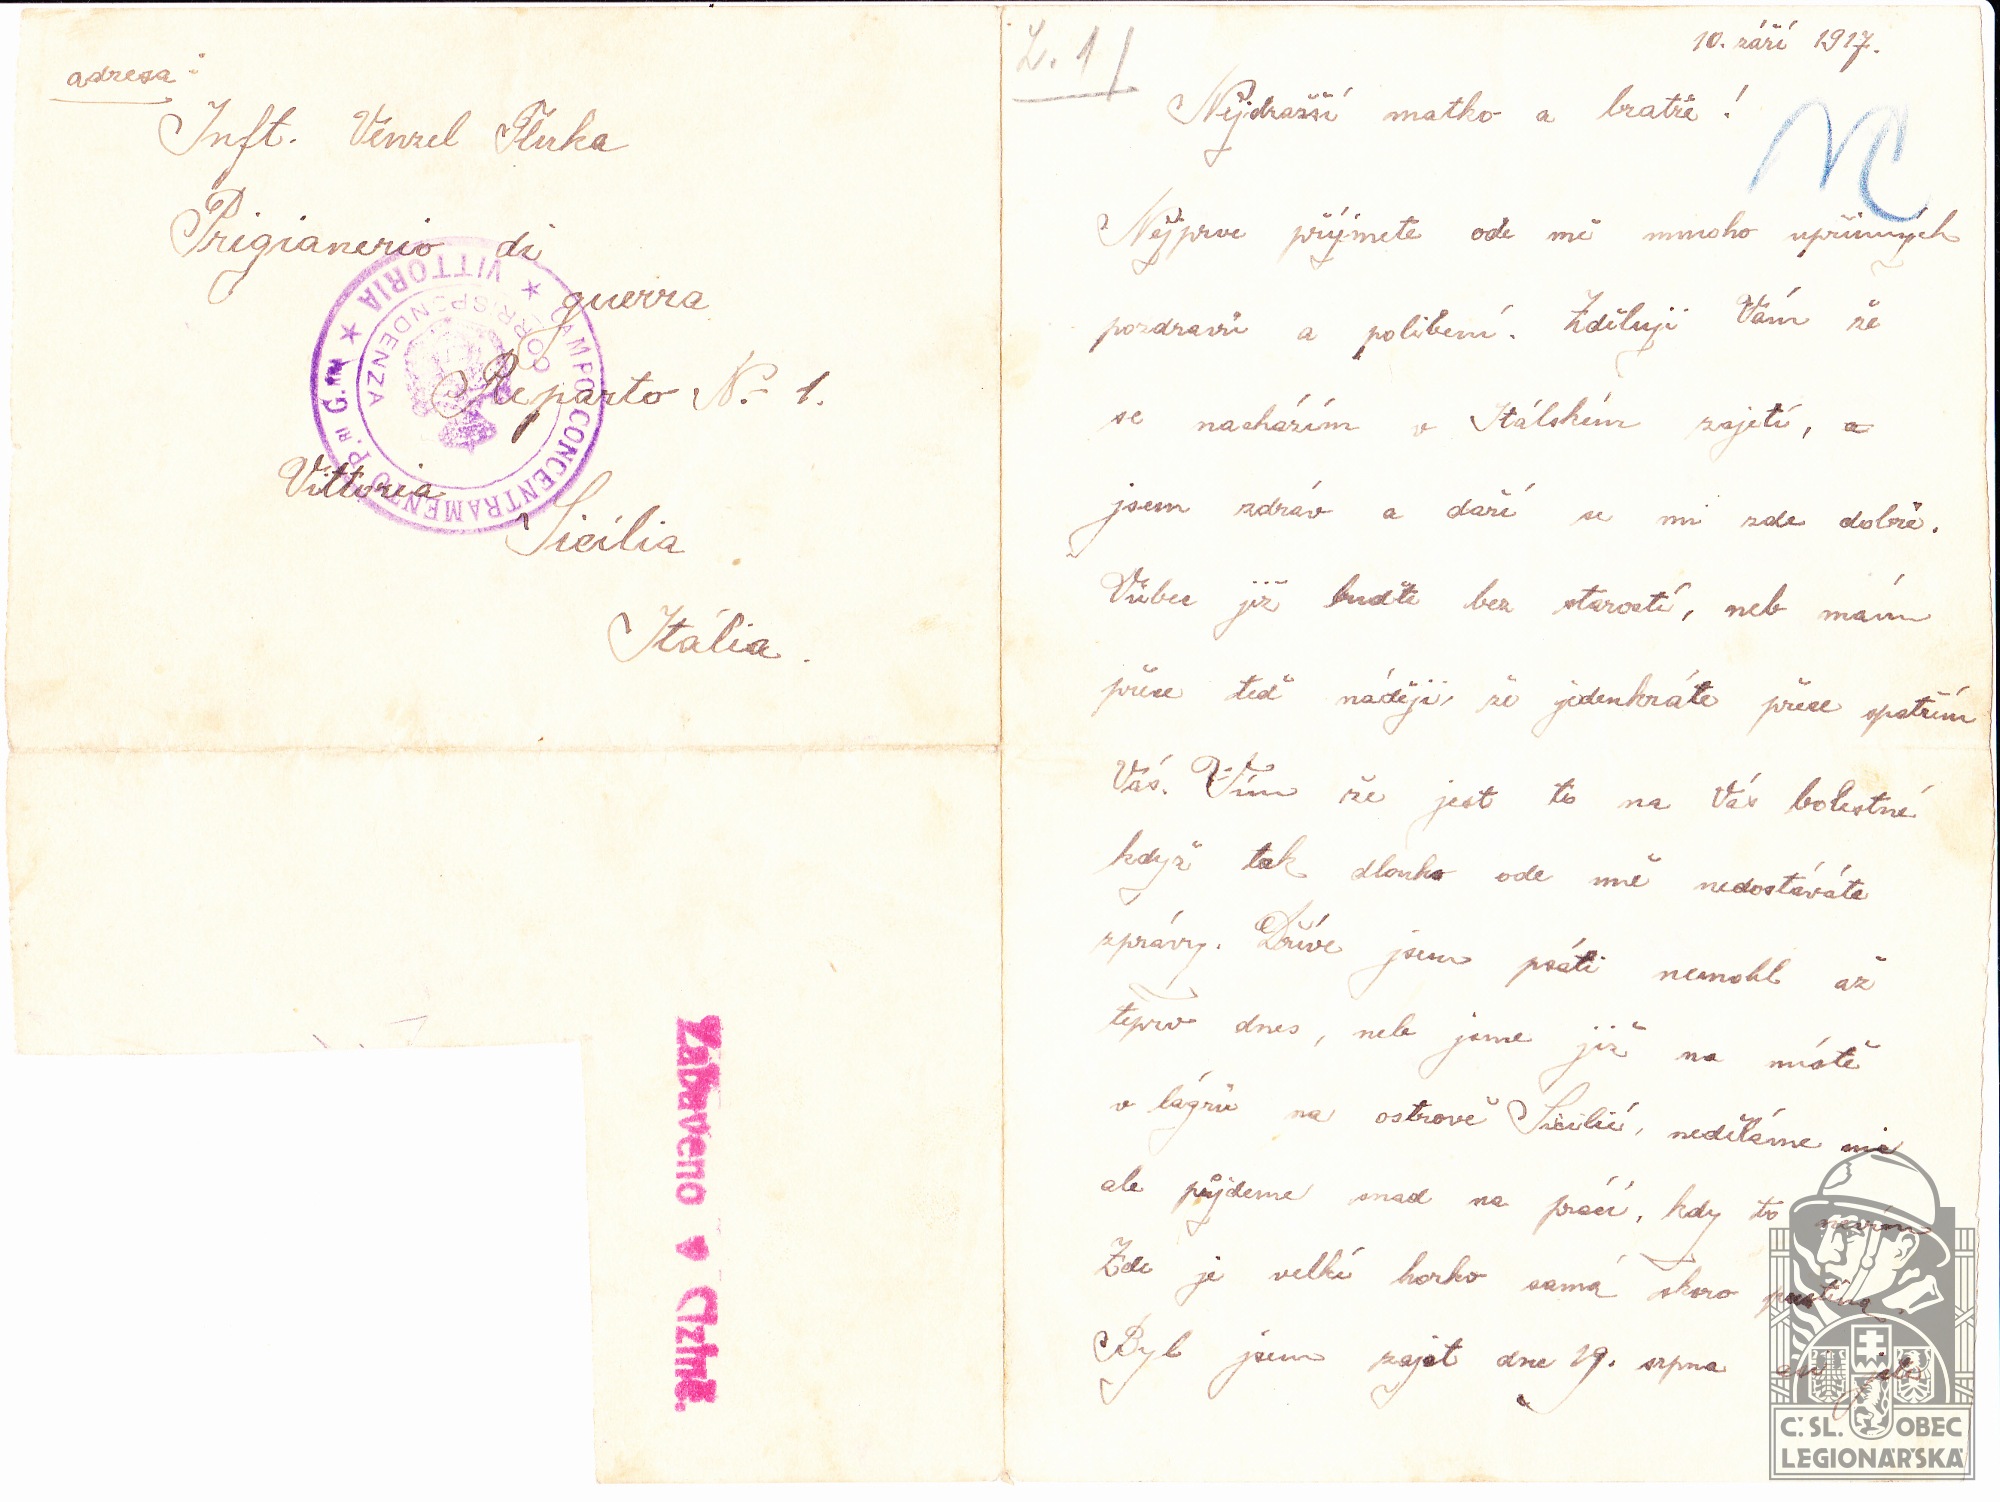 adresa:
Inft. Venzel Fluka
Prigianerio di
guerra
Reparto No 1.
Vittoria
Sicília
Itália.
CAMPO CONCENTRAMENTO P. RI G. VITTORIA
CORRISPONDENZA
Zabaveno Cizině.
Z. 1/
10. září 1917.
Nejdražší matko a bratře!
NC
Nejprve příjmete ode mě mnoho upřimných
pozdravů a políbení. Zděluji Vám že
se nacházím v Itálském zajetí, a
jsem zdráv a daří se mi zde dobře.
Vůbec již buďte bez starostí, neb mám
přece teď náději, že jedenkráte přece spatřím
Vás. Vím že jest to na Vás bolestné
když tak dlouho ode mě nedostáváte
zprávy. Dříve jsem psáti nemohl až
teprv dnes, neb jsme již na místě
v lágrů na ostrově Sicilií, neděláme nic
ale půjdeme snad na prácí, kdy to nevím
Zde je velké horko samá skoro pustina.
Byl jsem zajat dne 19. srpna
Č. SL. OBEC
LEGIONÁŘSKÁ